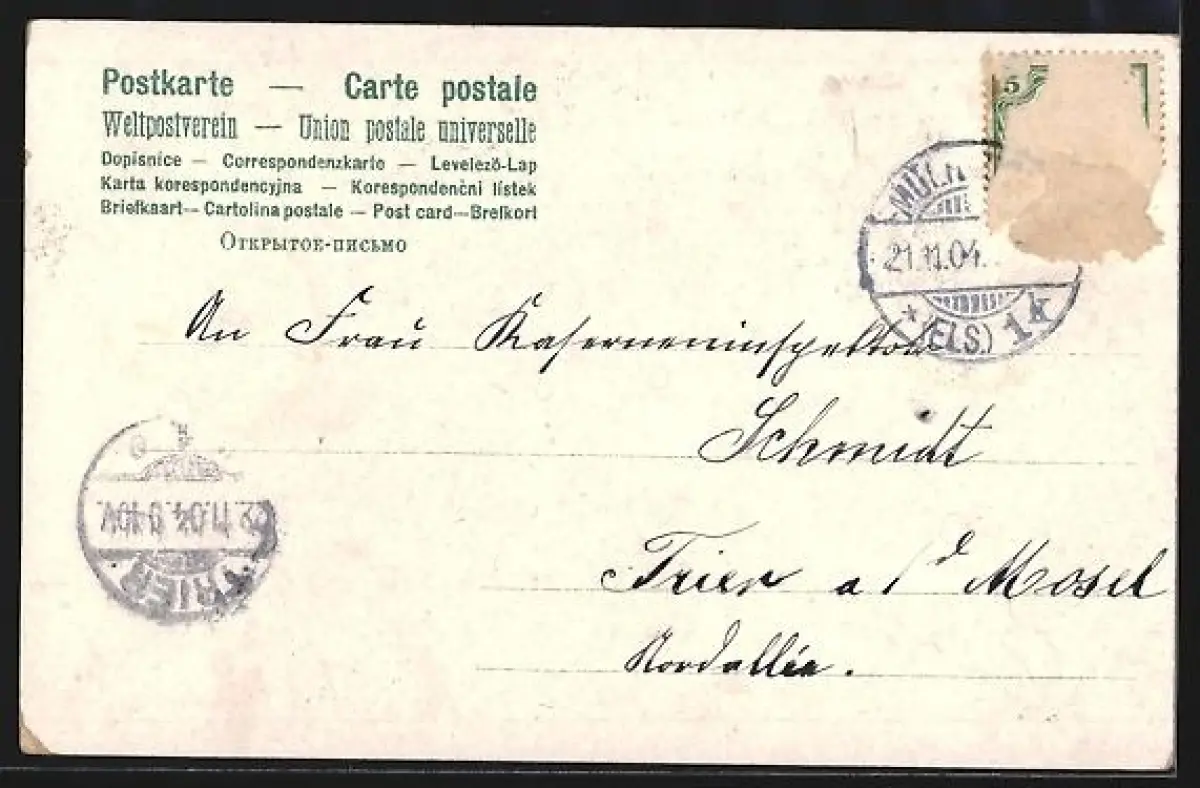 Postkarte — Carte postale
Weltpostverein — Union postale universelle
Dopisnice — Correspondenzkarte — Levelező-Lap
Karta korespondencyjna — Korespondenční lístek
Briefkaart — Cartolina postale — Post card — Brefkort
Открытое-письмо
5
21.11.04.
* (ELS.) 1k
An Frau Kaserneninspektor
Schmidt
Trier a/d Mosel
Nordallée.
TRIER
11.04.9-10V.